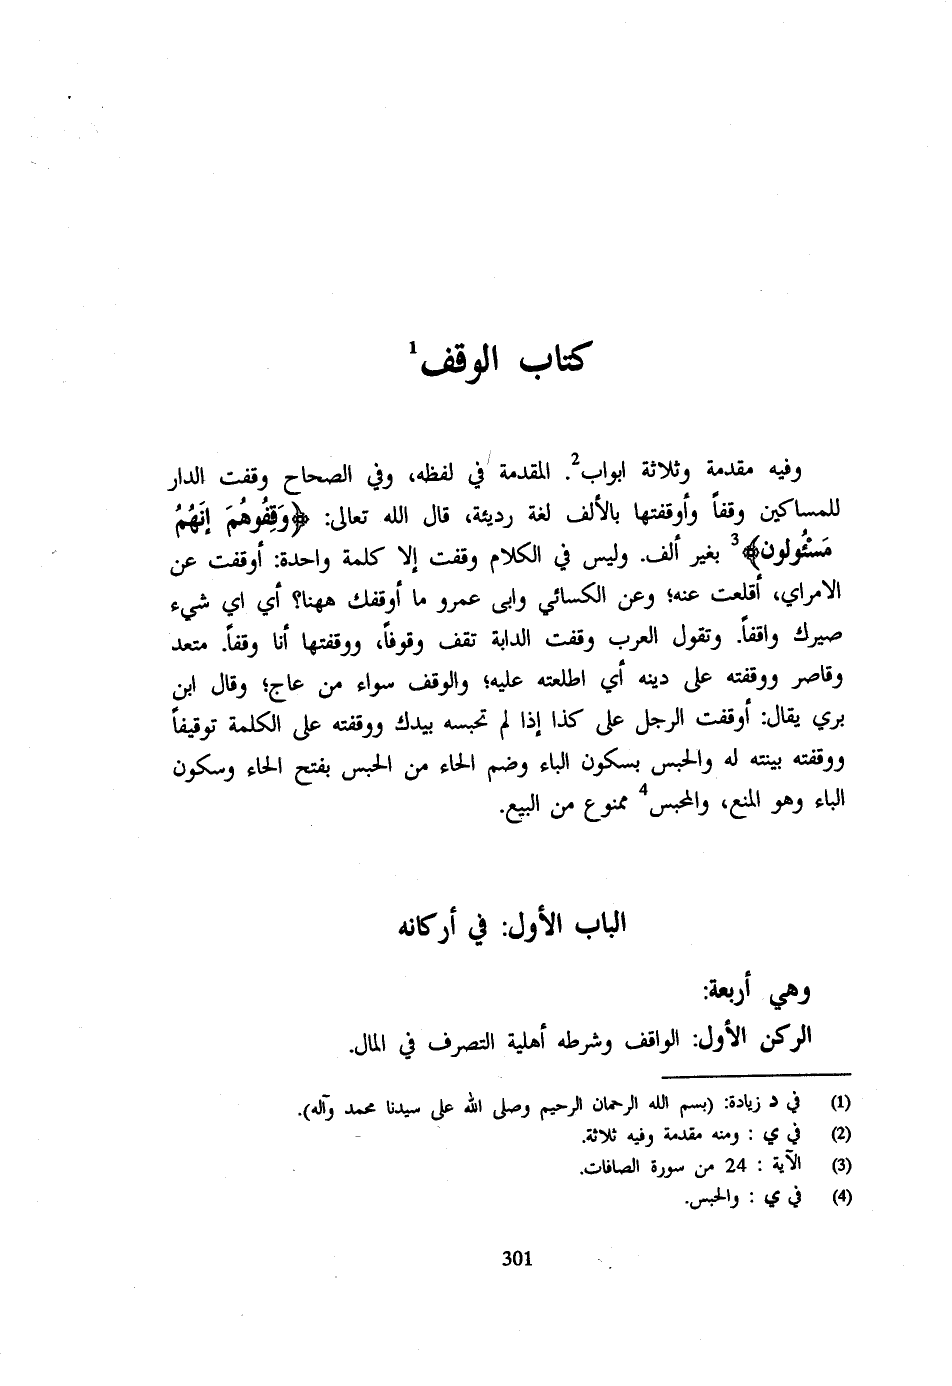 كتاب الوقف1
وفيه مقدمة وثلاثة ابواب2. المقدمة في لفظه، وفي الصحاح وقفت الدار
للمساكين وقفاً وأوقفتها بالألف لغة رديئة، قال الله تعالى: ﴿وَقِفُوهُمَ إنَهُمُ
مَسْئُولون﴾3 بغير ألف. وليس في الكلام وقفت إلا كلمة واحدة: أوقفت عن
الامراي، أقلعت عنه؛ وعن الكسائي وابى عمرو ما أوقفك ههنا؟ أي اي شيء
صيرك واقفاً. وتقول العرب وقفت الدابة تقف وقوفاً، ووقفتها أنا وقفاً. متعد
وقاصر ووقفته على دينه أي اطلعته عليه؛ والوقف سواء من عاج؛ وقال ابن
بري يقال: أوقفت الرجل على كذا إذا لم تحبسه بيدك ووقفته على الكلمة توقيفاً
ووقفته بينته له والحبس بسكون الباء وضم الحاء من الحبس بفتح الحاء وسكون
الباء وهو المنع، والمحبس4 ممنوع من البيع.
الباب الأول: في أركانه
وهي أربعة:
الركن الأول: الواقف وشرطه أهلية التصرف في المال.
(1) في د زيادة: (بسم الله الرحمان الرحيم وصلى الله على سيدنا محمد وآله).
(2) في ي : ومنه مقدمة وفيه ثلاثة.
(3) الآية : 24 من سورة الصافات.
(4) في ي : والحبس.
301